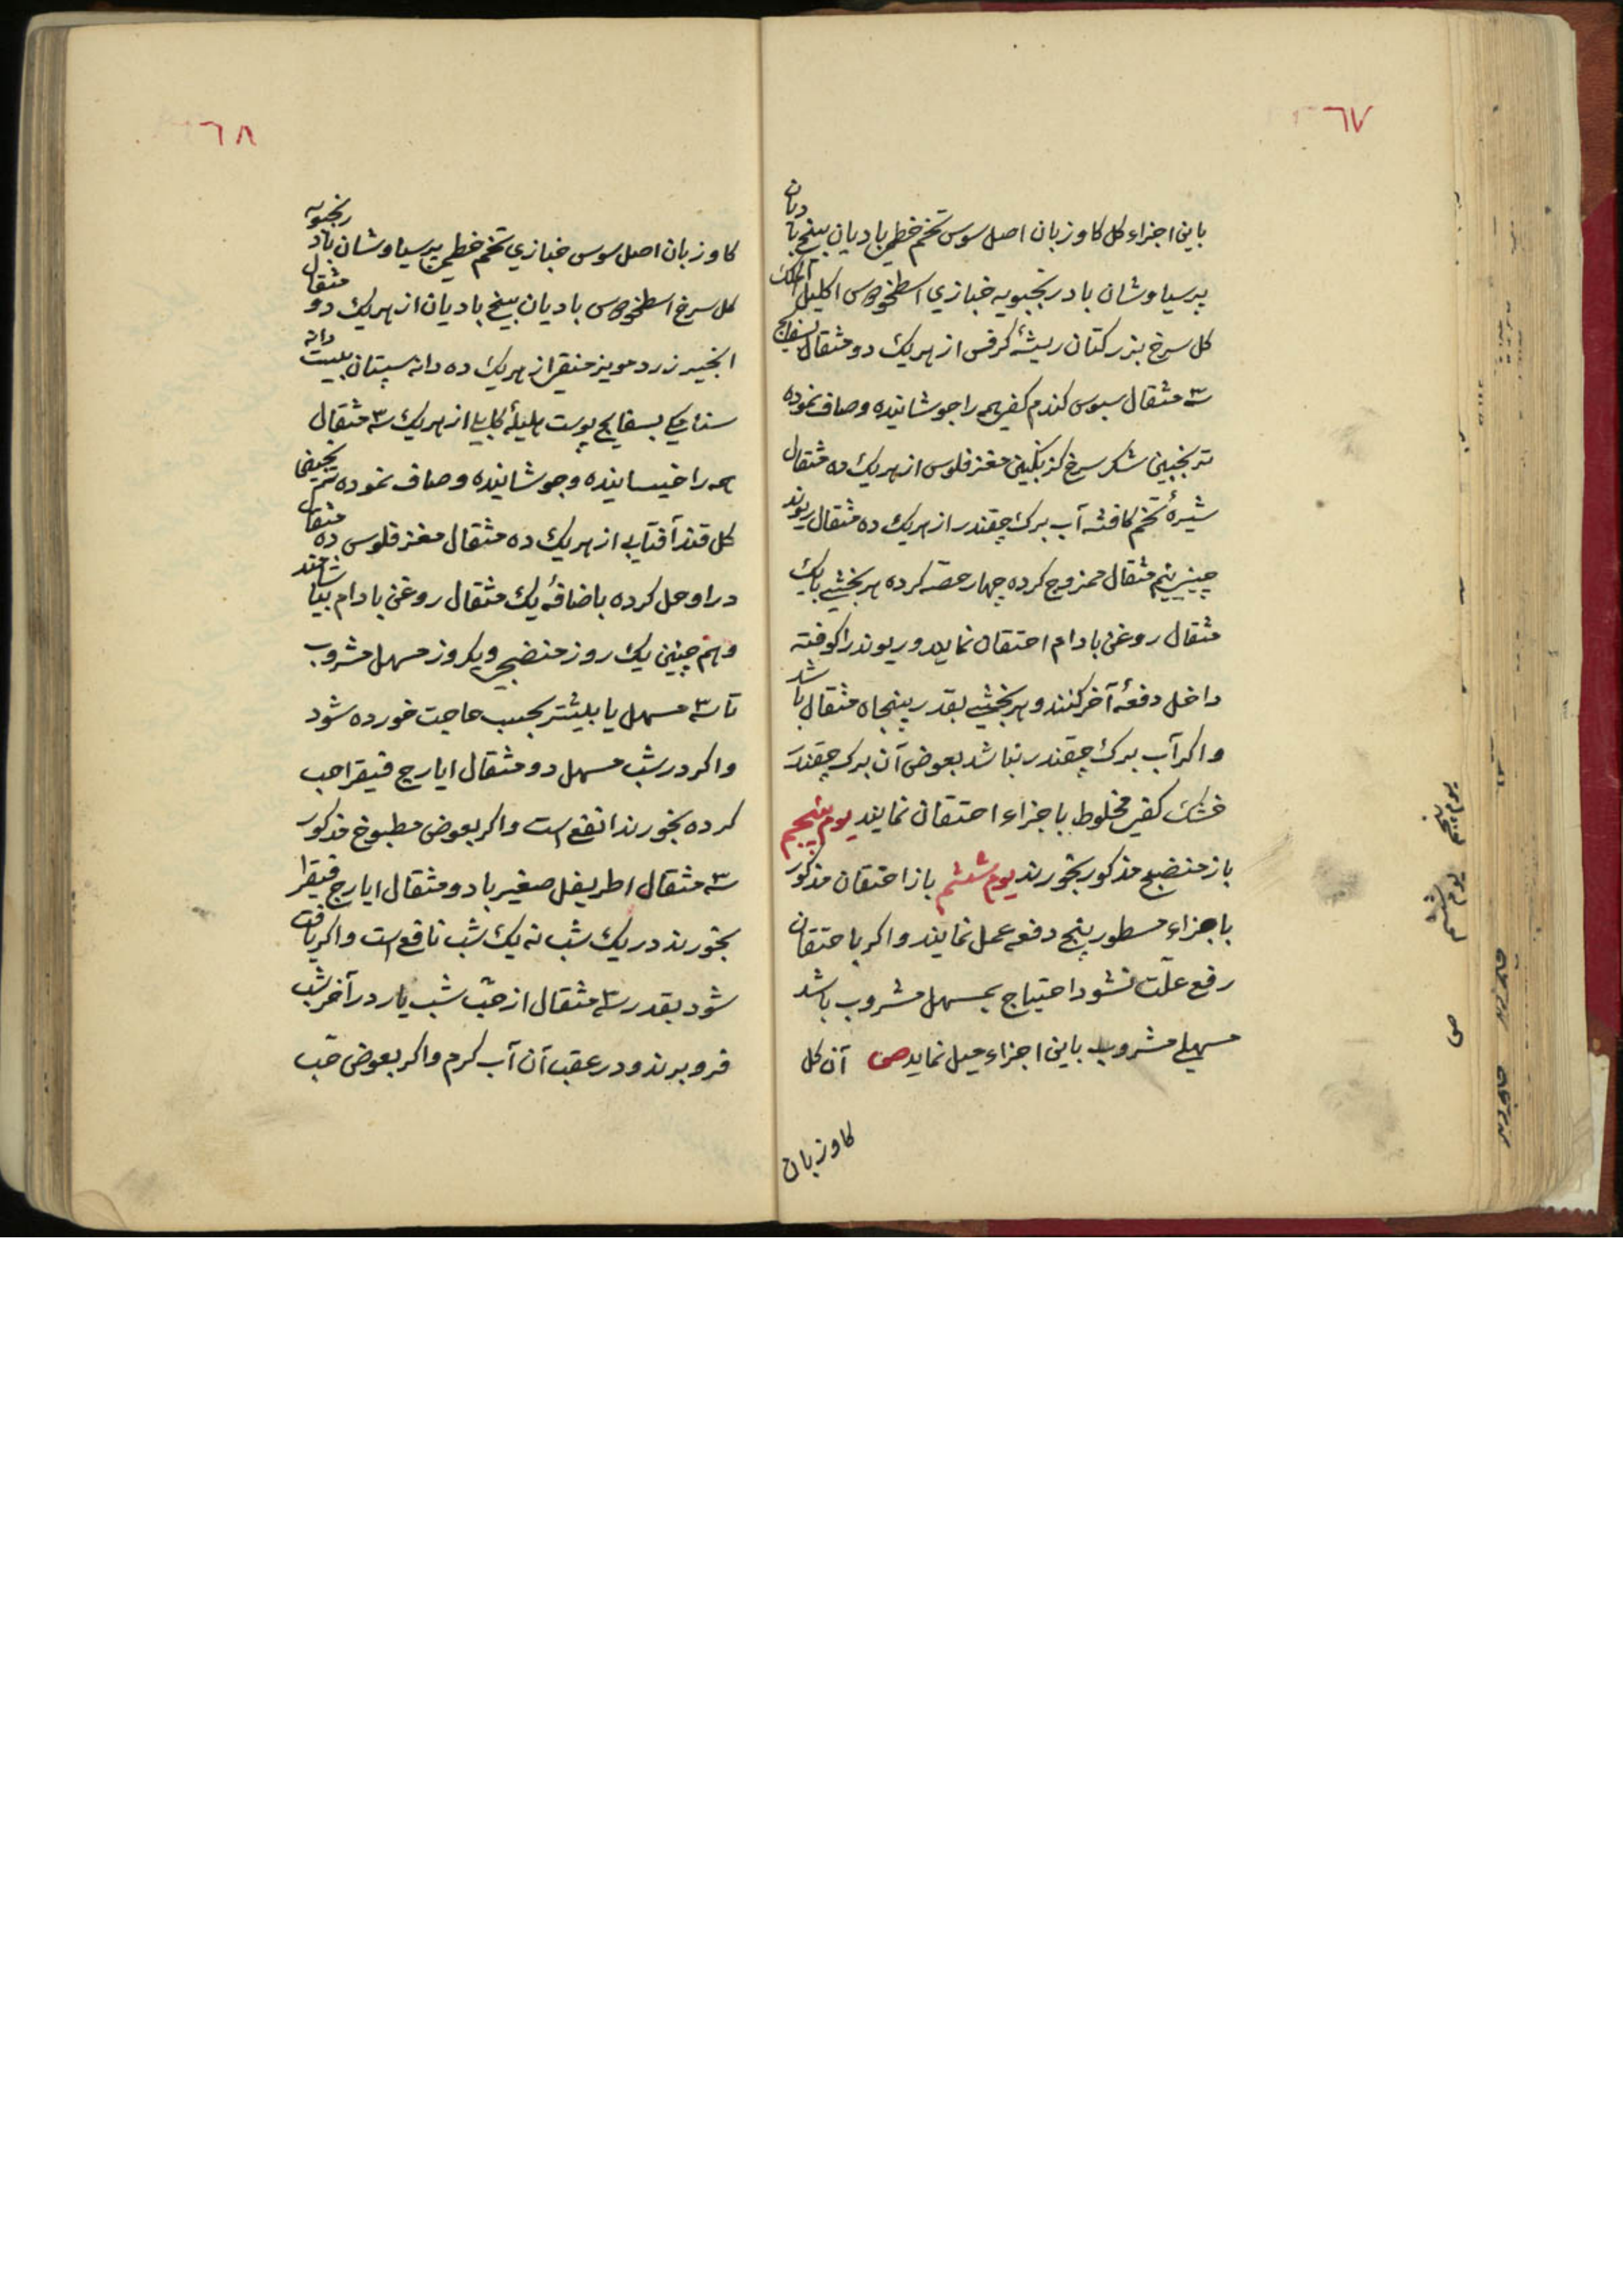 ٦٧
باین اجزاء کل کاوزبان اصل سوس تخم خطمی بادیان بیخ بادیان
پرسیاوشان بادرنجبویه خبازي اسطخودوس اکلیل الملک
کل سرخ بزرکتان ریشۀ کرفس از هریک دو مثقال بسفایج
سه مثقال سبوس کندم کفی همه را جوشانیده و صاف نموده
ترنجبین شکر سرخ کزنکبین مغز فلوس از هریک ده مثقال
شیرۀ تخم کافشه آب برک چقندر از هریک ده مثقال ریوند
چینی نیم مثقال ممزوج کرده چهار حصه کرده هر بخشی با یک
مثقال روغن بادام احتقان نمایند و ریوند را کوفته
داخل دفعۀ آخر کنند و هر بخشی بقدر پنجاه مثقال باشد
و اکر آب برک چقندر نباشد بعوض آن برک چقندر
خشک کفی مخلوط باجزاء احتقان نمایند یوم پنجم
باز منضج مذکور بخورند یوم ششم باز احتقان مذکور
باجزاء مسطور پنج دفعه عمل نمایند و اکر باحتقان
رفع علّت نشود احتیاج بمسهل مشروب باشد
مسهلی مشروب باین اجزاء میل نماید ص آن کل
کاوزبان
یوم پنجم
یوم ششم
ص
٦٨
کاوزبان اصل سوس خبازي تخم خطمی پرسیاوشان بادرنجبویه
کل سرخ اسطخودوس بادیان بیخ بادیان از هریک دو مثقال
انجیر زرد مویز منقی از هریک ده دانه سپستان بیست دانه
سناء مکی بسفایج پوست هلیلۀ کابلی از هریک سه مثقال
همه را خیسانیده و جوشانیده و صاف نموده ترنجبین
کل قند آفتابی از هریک ده مثقال مغز فلوس ده مثقال
در او حل کرده باضافۀ یک مثقال روغن بادام بیاشامند
و هم چنین یک روز منضج و یکروز مسهل مشروب
تا سه مسهل یا بیشتر بحسب حاجت خورده شود
و اکر در شب مسهل دو مثقال ایارج فیقرا حب
کرده بخورند انفع است و اکر بعوض مطبوخ مذکور
سه مثقال اطریفل صغیر با دو مثقال ایارج فیقرا
بخورند در یک شب نه یک شب نافع است و اکر یافت
شود بقدر سه مثقال از حبّ شب یار در آخر شب
فرو برند و در عقب آن آب کرم و اکر بعوض حب